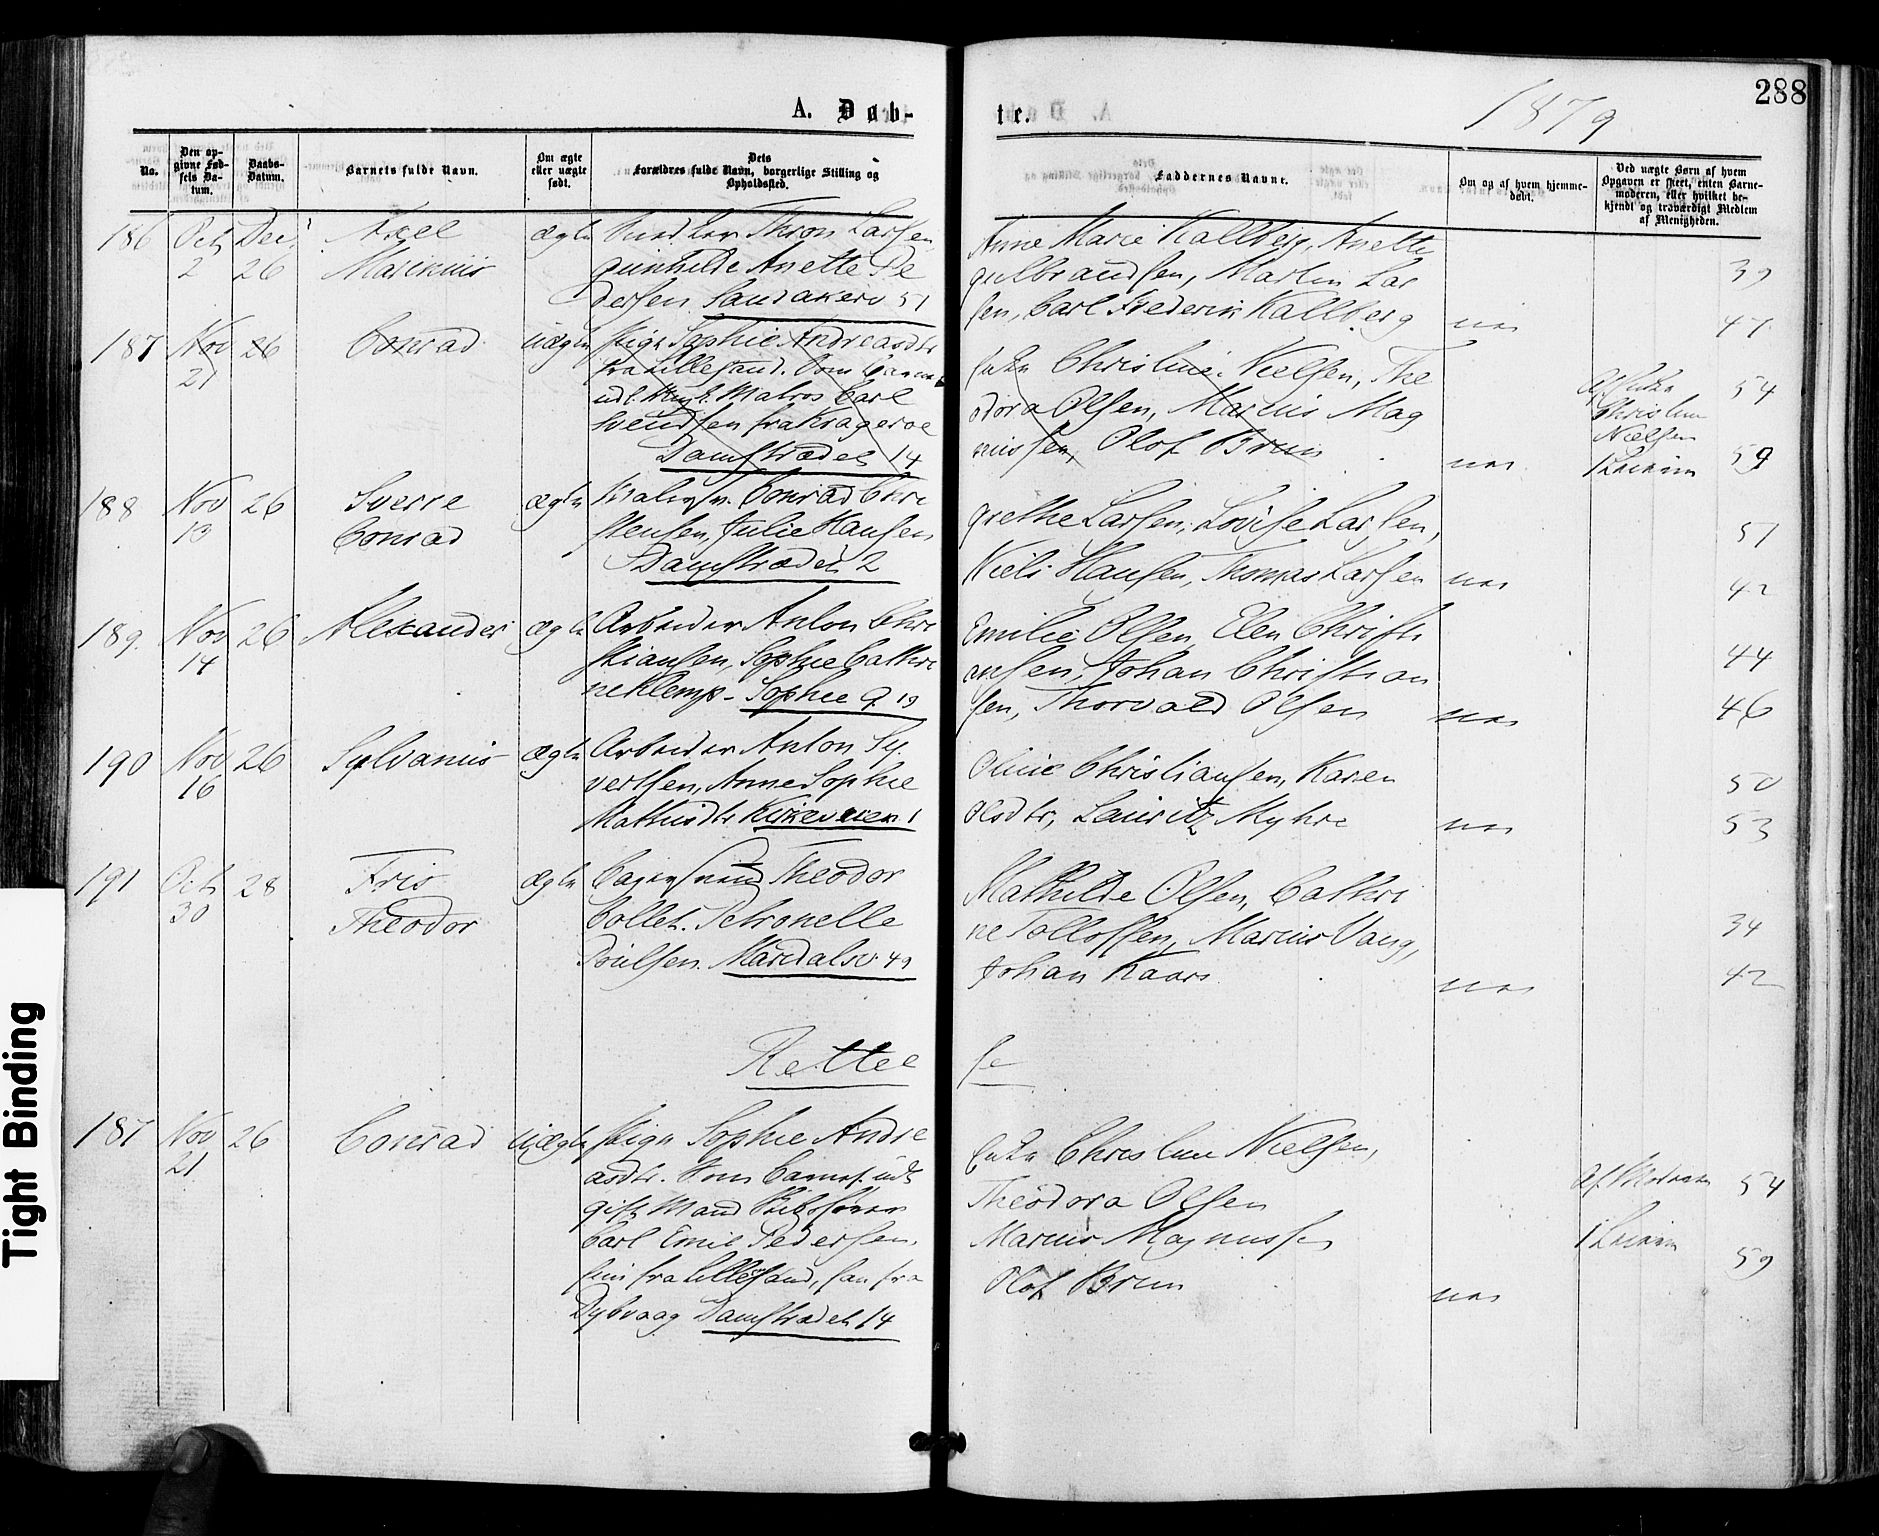 288
A. Døb-
te.
1879
No.
Den op-
givne Fød-
sels Da-
tum.
Daabs-
Datum.
Barnets fulde Navn.
Om ægte
eller uægte
født.
Dets
Forældres fulde Navn, borgerlige Stilling og
Opholdssted.
Faddernes Navne.
Om og af hvem hjemme-
døbt.
Ved uægte Børn af hvem
Opgaven er skeet, enten Barne-
moderen, eller hvilket be-
kjendt og troværdigt Medlem
af Menigheden.
186 Oct Dec Axel ægte Thron Larsen
2 26 Marinius Gunhilde Anette Pe
dersen Sandakerv 51
Anne Marie Kallberg, Anette
Gulbrandsen, Martin Lar 39
sen, Carl Frederik Kallberg 47
187 Nov 26 Conrad uægte Pige Sophie Andreasdtr
21 fra Lillesand. Som Barnef
udl. Matros Carl
Svendsen fra Kragerøe
Damstrædet 14
Enke Christine Nielsen, The
odora Olsen, Marius Mag
nussen, Olof Brun
Af Enke 54
Christine
Nielsen
59
188 Nov 26 Sverre ægte Conrad Chri
13 Conrad stensen, Julie Hansen
Damstrædet 2
Grethe Larsen, Lovise Larsen, 51
Niels Hansen, Thomas Larsen 42
189. Nov 26 Alexander ægte Arbeider Anton Chri
14 stiansen, Sophie Cathri
ne Klemp - Sophie G. 19
Emilie Olsen, Elen Christi
ansen, Johan Christian 44
sen, Thorvald Olsen 46
190 Nov 26 Sylvanus ægte Arbeider Anton Sy
16 vertsen, Anne Sophie
Mathisdtr Kirkeveien 1
Oline Christiansen, Karen 50
Olsdtr, Lauritz Myhre 53
191 Oct 28 Fris ægte Theodor
30 Theodor Collet. Petronelle
Poulsen. Maridalsv. 49
Mathilde Olsen, Cathri
ne Tolloffsen, Marius Vang, 34
Johan Kaars 42
Rettel
se
187 Nov 26 Conrad uægte Pige Sophie Andre
21 asdtr. Som Barnef. udl
gift Mand Skibsfører
Carl Emil Pedersen,
hun fra Lillesand, han fra
Dybvaag Damstrædet 14
Enke Christine Nielsen,
Theodora Olsen
Marius Magnussen
Olof Brun
Af Moderen 54
59
Tight Binding